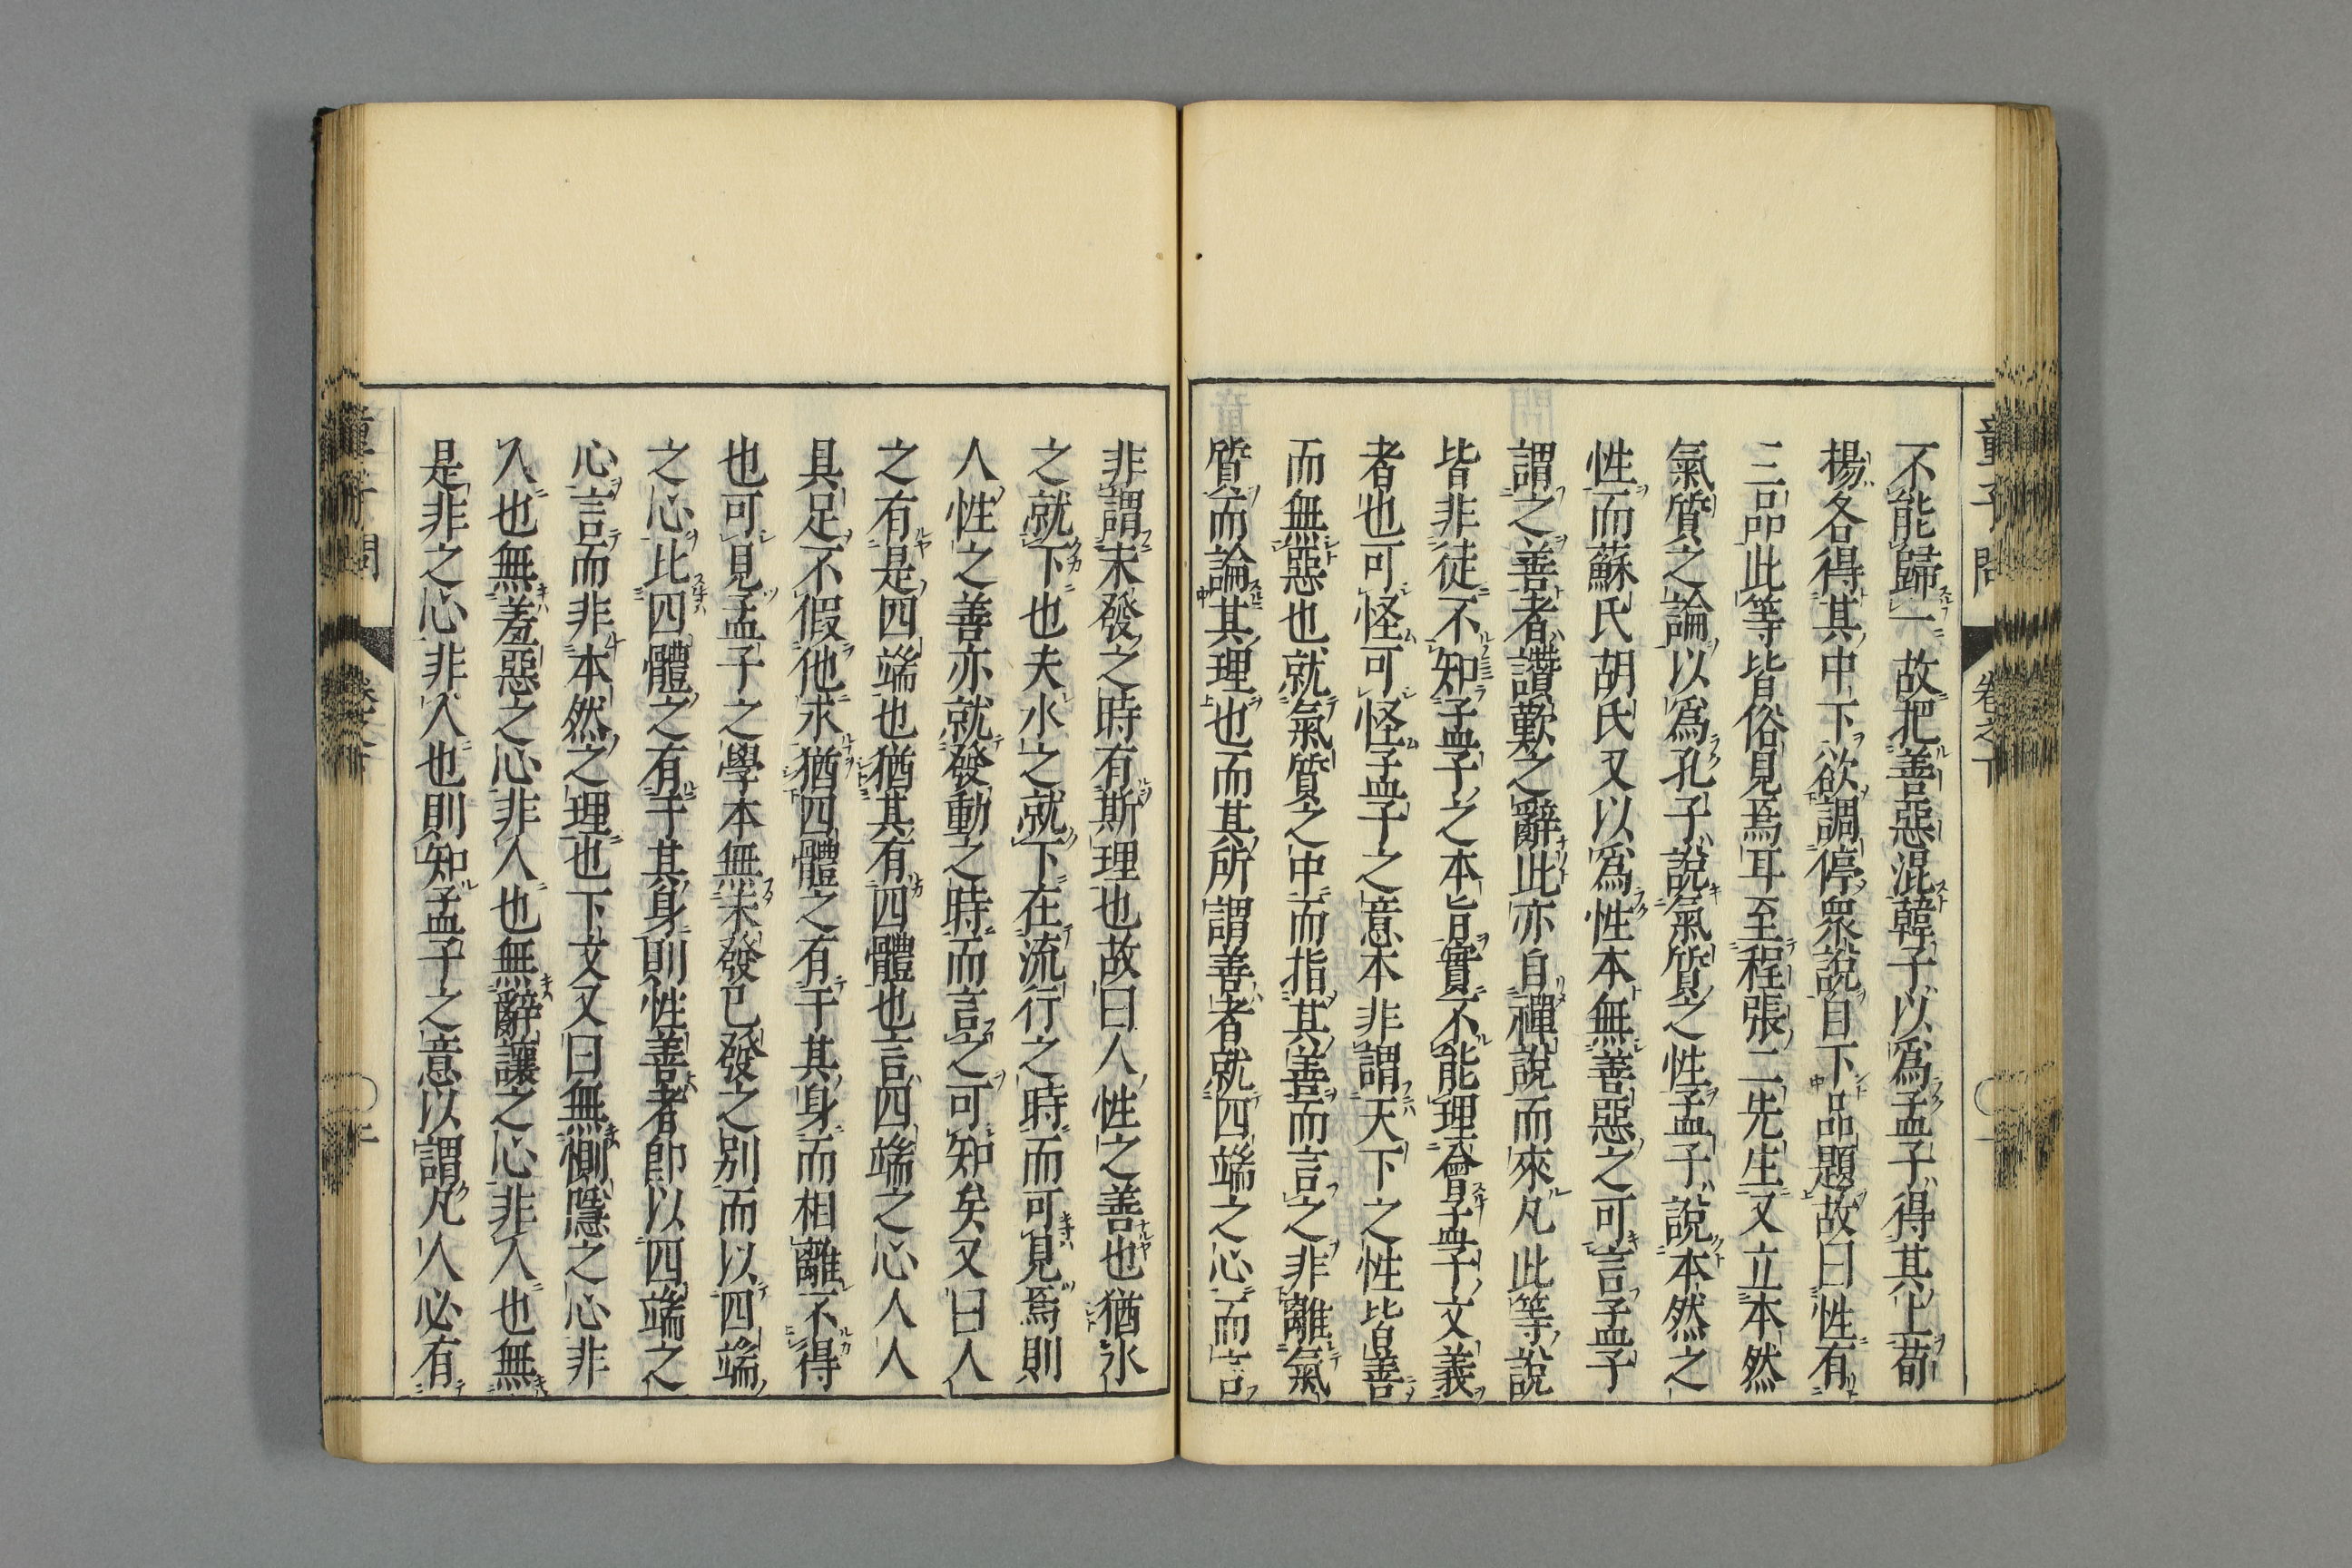 童子問 卷之下
不能歸一故把善惡混韓子以爲孟子得其上荀
揚各得其中下欲調停衆說自下品題故曰性有
三品此等皆俗見焉耳至程張二先生又立本然
氣質之論以爲孔子說氣質之性孟子說本然之
性而蘇氏胡氏又以爲性本無善惡之可言孟子
謂之善者讚歎之辭此亦自禪說而來凡此等說
皆非徒不知孟子之本旨實不能理會孟子文義
者也可怪可怪孟子之意本非謂天下之性皆善
而無惡也就氣質之中而指其善而言之非離氣
質而論其理也而其所謂善者就四端之心而言
非謂未發之時有斯理也故曰人性之善也猶水
之就下也夫水之就下在流行之時而可見焉則
人性之善亦就發動之時而言之可知矣又曰人
之有是四端也猶其有四體也言四端之心人人
具足不假他求猶四體之有于其身而相離不得
也可見孟子之學本無未發已發之別而以四端
之心比四體之有于其身則性善者即以四端之
心言而非本然之理也下文又曰無惻隱之心非
人也無羞惡之心非人也無辭讓之心非人也無
是非之心非人也則知孟子之意以謂凡人必有
童子問